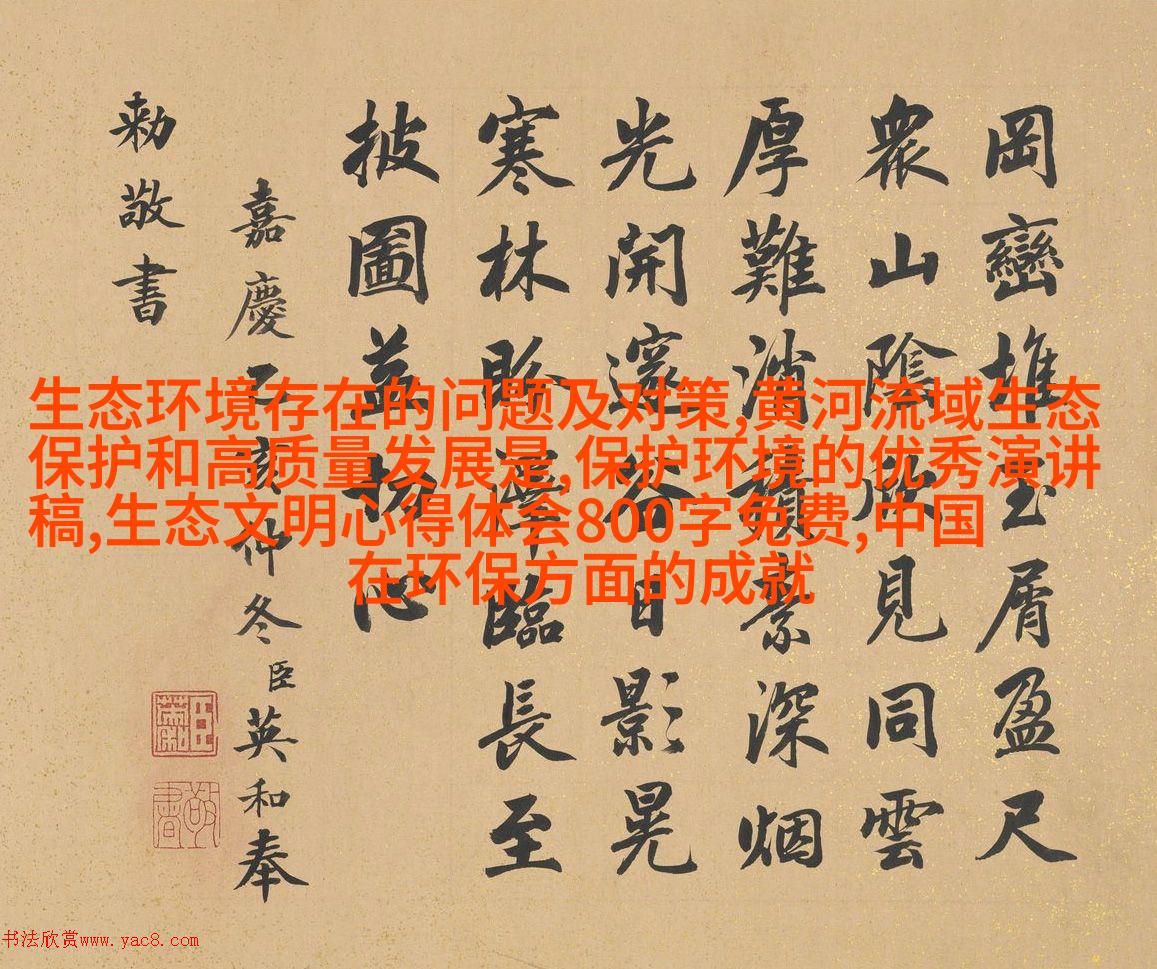 岡巒堆玉屑盈尺
衆山陰見同雲
厚難消積素深烟
光開邃谷日影晃
寒林臨長至
披圖益切心
嘉慶乙亥仲冬臣英和奉
勅敬書
生态环境存在的问题及对策,黄河流域生态
保护和高质量发展是,保护环境的优秀演讲
稿,生态文明心得体会800字免费,中国
在环保方面的成就
敬書
书法欣赏www.yac8.com